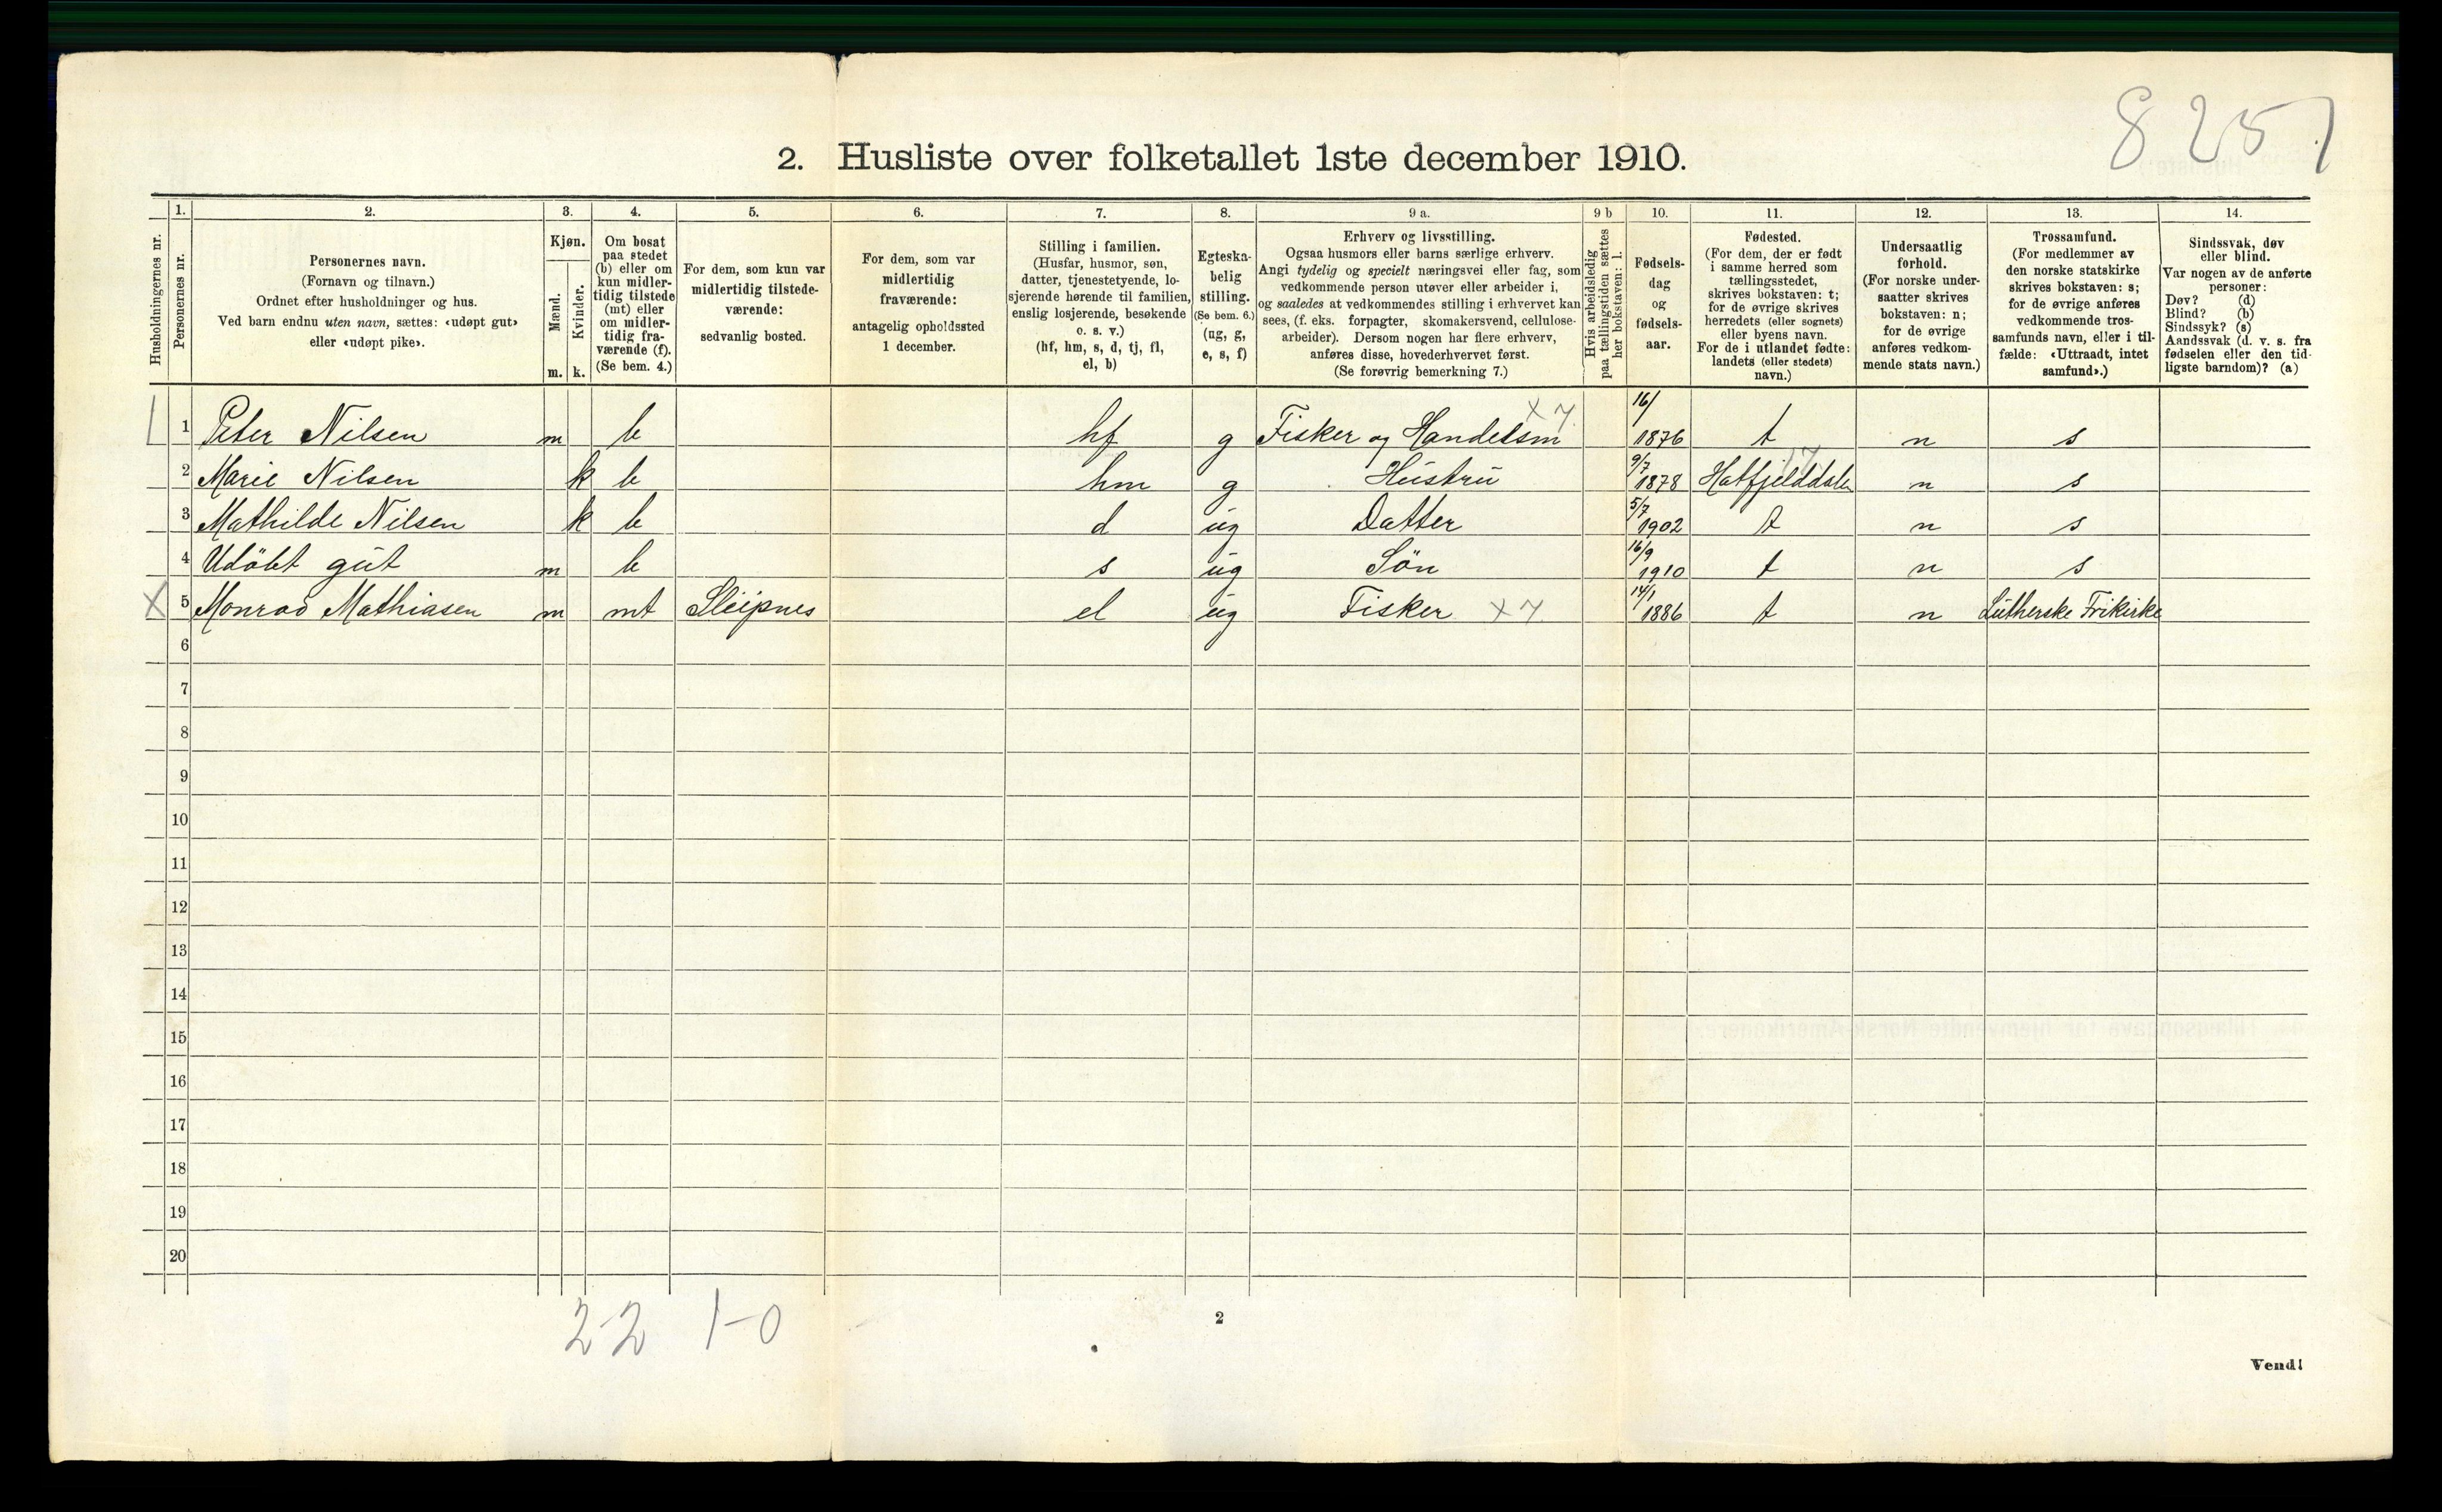 8251
2. Husliste over folketallet 1ste december 1910.
1. 2. 3. 4. 5. 6. 7. 8. 9 a. 9 b 10. 11. 12. 13. 14.
Husholdningernes nr.
Personernes nr.
Personernes navn.
(Fornavn og tilnavn.)
Ordnet efter husholdninger og hus.
Ved barn endnu uten navn, sættes: «udøpt gut»
eller «udøpt pike».
Kjøn.
Mænd.
Kvinder.
m. k.
Om bosat
paa stedet
(b) eller om
kun midler-
tidig tilstede
(mt) eller
om midler-
tidig fra-
værende (f).
(Se bem. 4.)
For dem, som kun var
midlertidig tilstede-
værende:
sedvanlig bosted.
For dem, som var
midlertidig
fraværende:
antagelig opholdssted
1 december.
Stilling i familien.
(Husfar, husmor, søn,
datter, tjenestetyende, lo-
sjerende hørende til familien,
enslig losjerende, besøkende
o. s. v.)
(hf, hm, s, d, tj, fl,
el, b)
Egteska-
belig
stilling.
(Se bem. 6.)
(ug, g,
e, s, f)
Erhverv og livsstilling.
Ogsaa husmors eller barns særlige erhverv.
Angi tydelig og specielt næringsvei eller fag, som
vedkommende person utøver eller arbeider i,
og saaledes at vedkommendes stilling i erhvervet kan
sees, (f. eks. forpagter, skomakersvend, cellulose-
arbeider). Dersom nogen har flere erhverv,
anføres disse, hovederhvervet først.
(Se forøvrig bemerkning 7.)
Hvis arbeidsledig
paa tællingstiden sættes
her bokstaven: l.
Fødsels-
dag
og
fødsels-
aar.
Fødested.
(For dem, der er født
i samme herred som
tællingsstedet,
skrives bokstaven: t;
for de øvrige skrives
herredets (eller sognets)
eller byens navn.
For de i utlandet fødte:
landets (eller stedets)
navn.)
Undersaatlig
forhold.
(For norske under-
saatter skrives
bokstaven: n;
for de øvrige
anføres vedkom-
mende stats navn.)
Trossamfund.
(For medlemmer av
den norske statskirke
skrives bokstaven: s;
for de øvrige anføres
vedkommende tros-
samfunds navn, eller i til-
fælde: «Uttraadt, intet
samfund».)
Sindssvak, døv
eller blind.
Var nogen av de anførte
personer:
Døv? (d)
Blind? (b)
Sindssyk? (s)
Aandssvak (d. v. s. fra
fødselen eller den tid-
ligste barndom)? (a)
1 Peter Nilsen m b hf g Fisker og Handelsm x 7 16/ 1876 t n s
2 Marie Nilsen k b hm g Hustru 9/7 1878 Hatfjelddalen n s
3 Mathilde Nilsen k b d ug Datter 5/7 1902 t n s
4 Udöbt gut m b s ug Sön 16/9 1910 t n s
x 5 Monrad Mathiasen m mt Sleipnes el ug Fisker x 7 14/1 1886 t n Lutherske Frikirke
6
7
8
9
10
11
12
13
14
15
16
17
18
19
20
2-2 1-0
2
Vend!